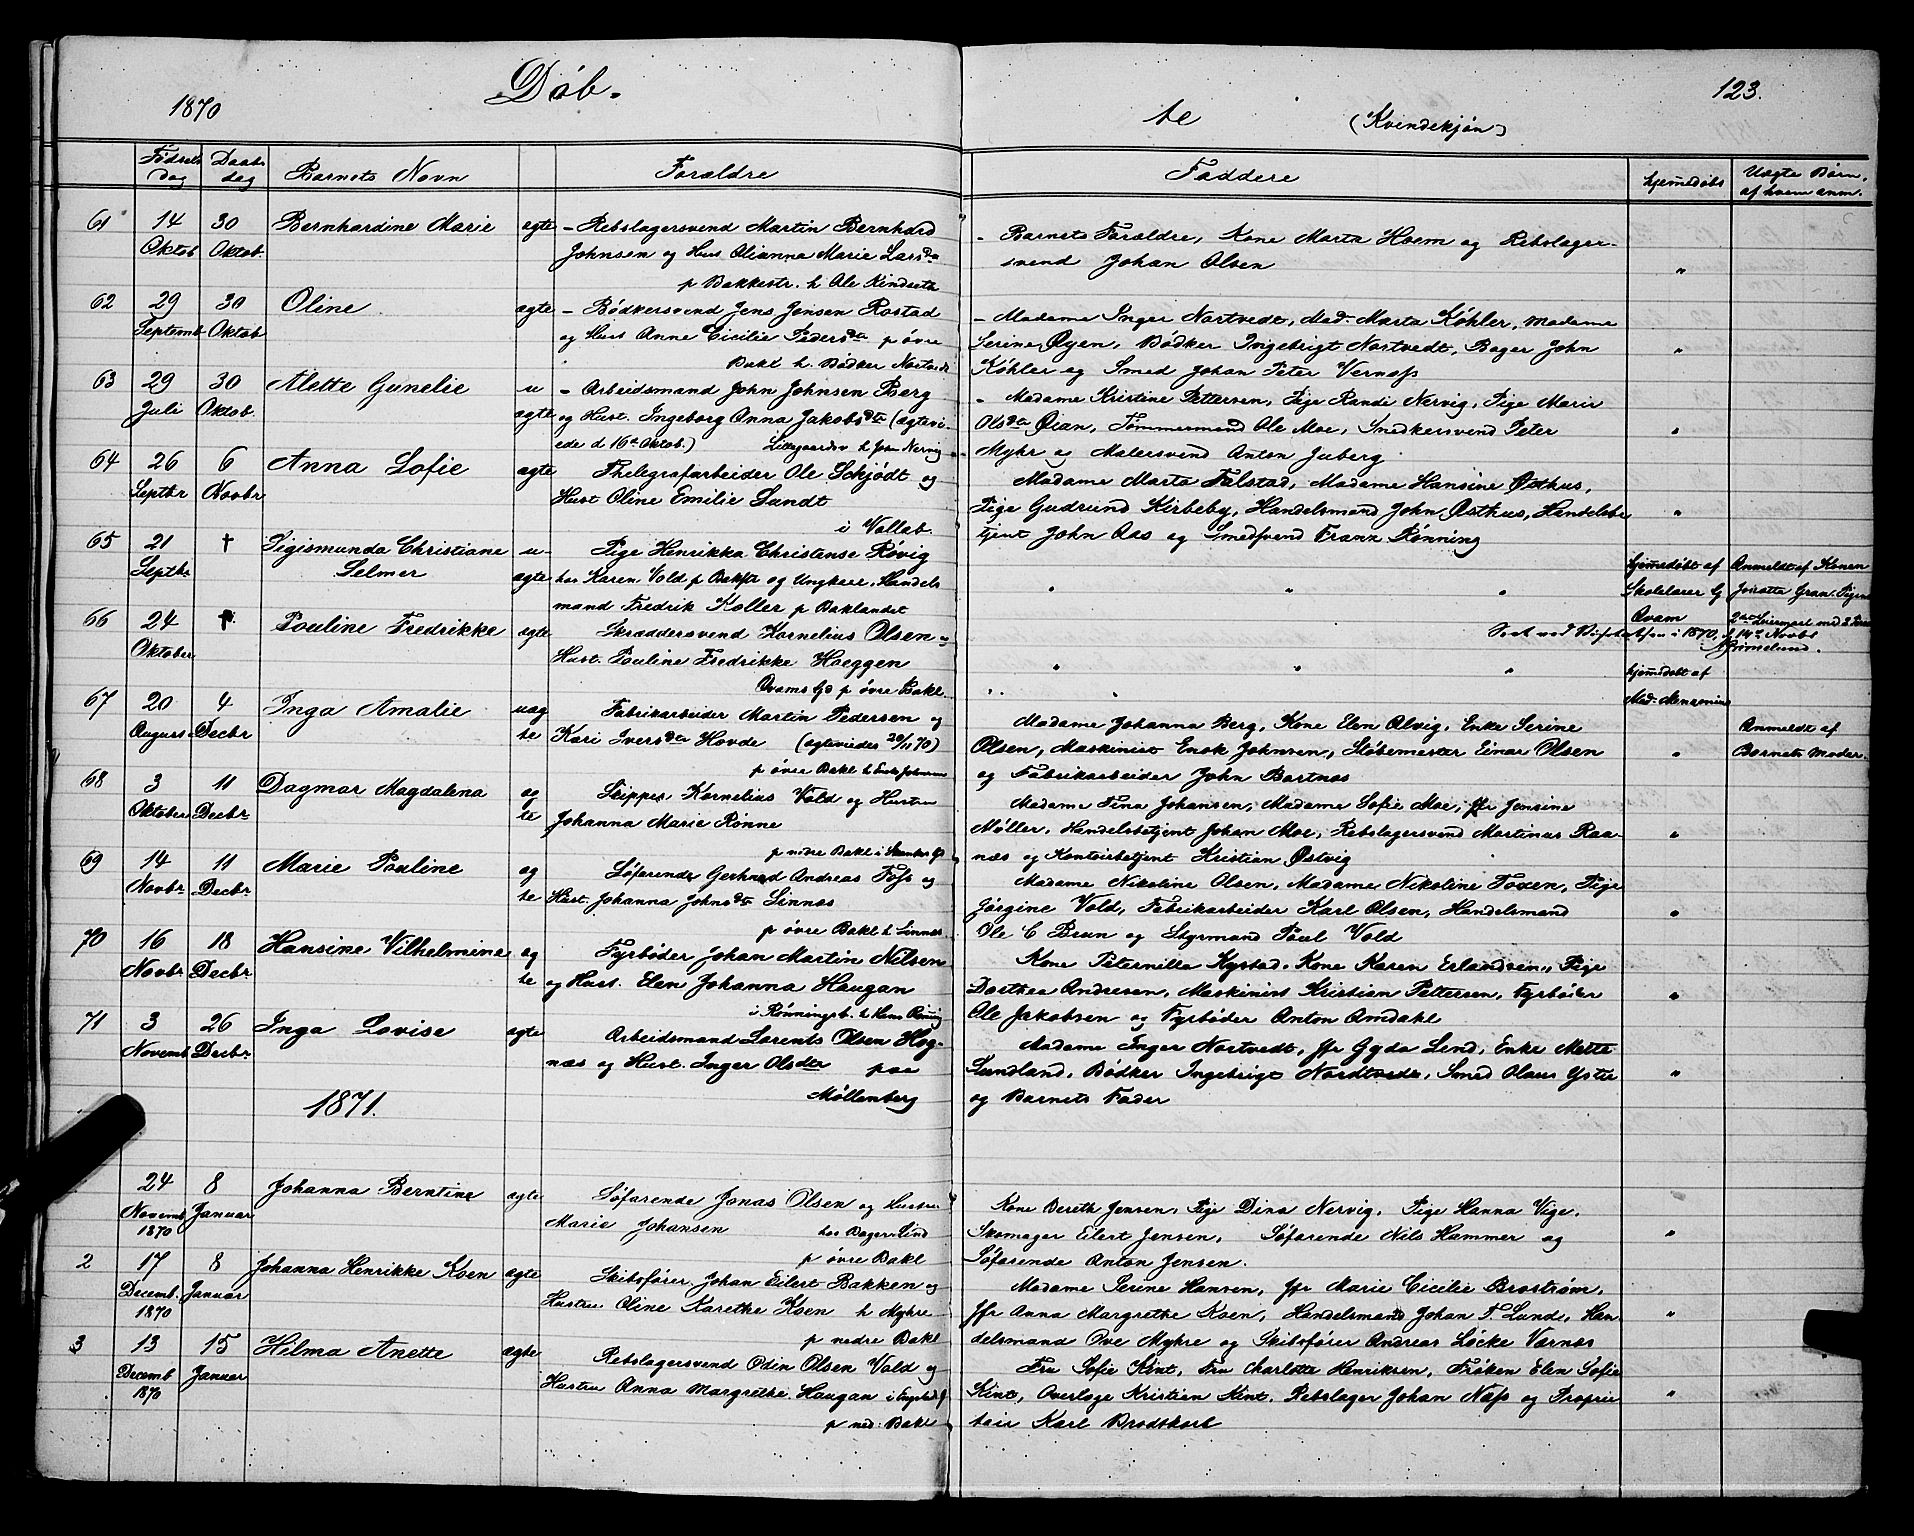 1870 Døb- te (Kvindekjøn) 123.
Fødsels dag Daabs dag Barnets Navn Forældre Faddere hjemmedøbt Uægte Børn, af hvem anm.
61 14 Oktob 30 Oktob. Bernhardine Marie ægte
- Rebslagersvend Martin Bernhard
Johnsen og Hust Olianna Marie Larsdtr
p Bakkestr. h Ole Kindseth
- Barnets Forældre, Kone Marta Hoem og Rebslager-
svend Johan Olsen "
62 29 Septemb 30 Oktob Oline ægte
- Bødkersvend Jens Jensen Rostad
og Hust Anne Cicilie Pedersdtr p øvre
Bakl h. Bødker Nortvedt
- Madame Inger Nortvedt, Mad. Marta Køhler, Madame
Serine Øyen, Bødker Ingebrigt Nortvedt, Bager John
Køhler og Smed Johan Peter Vernæss "
63 29 Juli 30 Oktob. Alette Gunelie u ægte
- Arbeidsmand John Johnsen Berg
og Hust. Ingeborg Anna Jakobsdtr (ægtevi-
ede d. 16de Oktob.) Lillegaardsv h Joan Nervig
- Madame Kristine Pettersen, Pige Randi Nervig, Pige Marie
Olsdtr Øian, Tømmermand Ole Moe, Snedkersvend Peter
Myhr og Malersvend Anton Juberg "
64 26 Septbr 6 Novbr Anna Sofie ægte
Thelegrafarbeider Ole Schjødt og
Hust Oline Emilie Lundt
i Vollab.
Madame Marta Falstad, Madame Hansine Østhus,
Pige Gudrund Kirkeby, Handelsmand John Østhus, Handelsbe
tjent John Aas og Smedsvend Franz Rønning "
65 21 Septbr † Sigismunda Christiane
Selmer u- ægte
Pige Henrikka Christense Røvig
hos Karen Vold p Bakstr og Ungkarl, Handels
mand Fredrik Koller p Baklandet
" " "
hjemmedøbt af
Skolelærer G
Qvam
Anmeldt af Konen
Gran. Pigens
2det Leiermaal med
66 24 Oktober † Pauline Fredrikke ægte
Skræddersvend Kornelius Olsen
Hust. Pauline Fredrikke Hoeggen
Qvams Gd p øvre Bakl
" " "
hjemmedøbt af
Mad.
Seet ved i 1870, d. 14de Novbr
Grimelund.
67 20 August 4 Decbr Inga Amalie uæg te
Fabrikarbeider Martin Pedersen og
Kari Iversdtr Hovde (ægteviedes 20/11 70)
p øvre Bakl h Enok Johnsen
Madame Johanna Berg, Kone Elen Alvig, Enke Serine
Olsen, Maskinist Enok Johnsen, Støbemester Einar Olsen
og Fabrikarbeider John Bartnæs "
Anmeldt af
Barnets Moder.
68 3 Oktober 11 Decbr Dagmar Magdalena æg te
Skipper Kornelius Vold og Hustru
Johanna Marie Rønne
p nedre Bakl i Gd
Madame Tina Johansen, Madame Sofie Moe, jfr Jensine
Møller, Handelsbetjent Johan Moe, Rebslagersvend Martinus Raa-
næs og Kontoirbetjent Kristian Østvig "
69 14 Novbr 11 Decbr Marie Pauline æg te
Søfarende Gerhard Andreas Foss og
Hust. Johanna Johnsdtr Linnæs
p øvre Bakl h. Linnæs
Madame Nikoline Olsen, Madame Nikoline Foxen, Pige
Jørgine Vold, Fabrikarbeider Karl Olsen, Handelsmand
Ole C Brun og Styrmand Poul Vold "
70 16 Novbr 18 Decbr Hansine Vilhelmine æg te
Fyrbøder Johan Martin Nilsen
og Hust. Elen Johanna Haugan
i Rønningsb. h Hans Rønnig
Kone Peternilla Kystad, Kone Karen Erlandsen, Pige
Dorthea Andresen, Maskinist Kristian Pettersen, Fyrbøder
Ole Jakobsen og Fyrbøder Anton Amdahl "
71 3 Novemb. 26 Decbr Inga Lovise ægte
Arbeidsmand Lorents Olsen Hog-
næs og Hust. Inger Olsdtr paa
Møllenberg
Madame Inger Nortvedt, jfr Gyda Lind, Enke Mette
Sundland, Bødker Ingebrigt Nordtvedt, Smed Olaus Yste
og Barnets Fader "
1871.
24 Novemb. 1870 8 Januar Johanna Berntine ægte
Søfarende Jonas Olsen og Hustru
Marie Johansen hos Bager Lind
p øvre Bakl
Kone Bereth Jensen, Pige Dina Nervig, Pige Hanna Vige,
Skomager Eilert Jensen, Søfarende Nils Hammer og
Søfarende Anton Jensen. "
2 17 Decemb. 1870 8 Januar Johanna Henrikke Koen ægte
Skibsfører Johan Eilert Bakken og
Hustru Oline Karethe Koen h Myhre
p nedre Bakl
Madame Serine Hansen, jfr Marie Cicilie Brostrøm,
jfr Anna Margrethe Koen, Handelsmand Johan F. Lund, Han
delsmand Ove Myhre og Skibsfører Andreas Løcke Værnæs "
3 13 Decemb 1870 15 Januar Hilma Anette ægte
Rebslagersvend Odin Olsen Vold og
Hustru Anna Margrethe Haugan
p ned: Bakl
Fru Sofie Kint, Fru Charlotte Henriksen, Frøken Elen Sofie
Kint, Overlæge Kristian Kint, Rebslager Johan Næss og Proprie
tair Karl Brodtkorb "